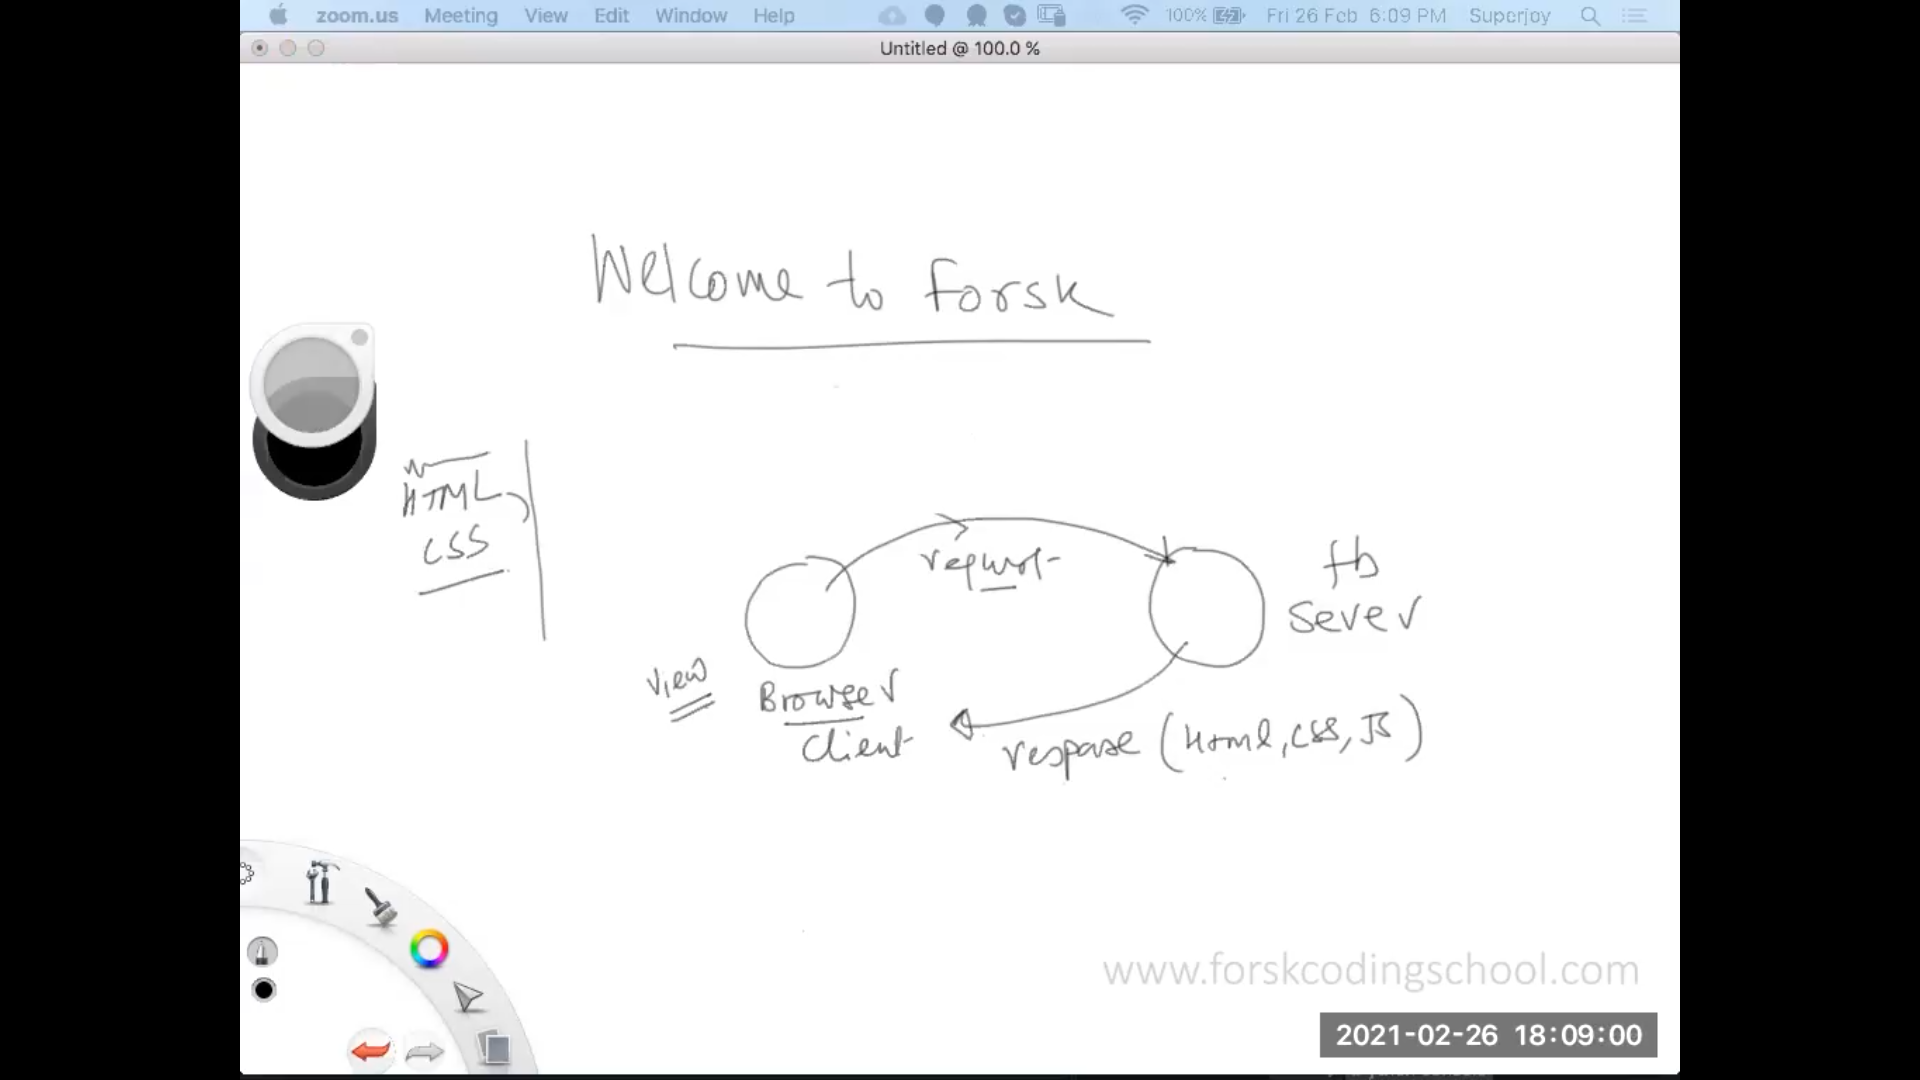 zoom.us Meeting View Edit Window Help 100% Fri 26 Feb 6:09 PM Superjoy
Untitled @ 100.0 %
Welcome to Forsk
HTML,
CSS
request
fb
Sever
view
Browser
Client
response (Html, CSS, JS)
www.forskcodingschool.com
2021-02-26 18:09:00